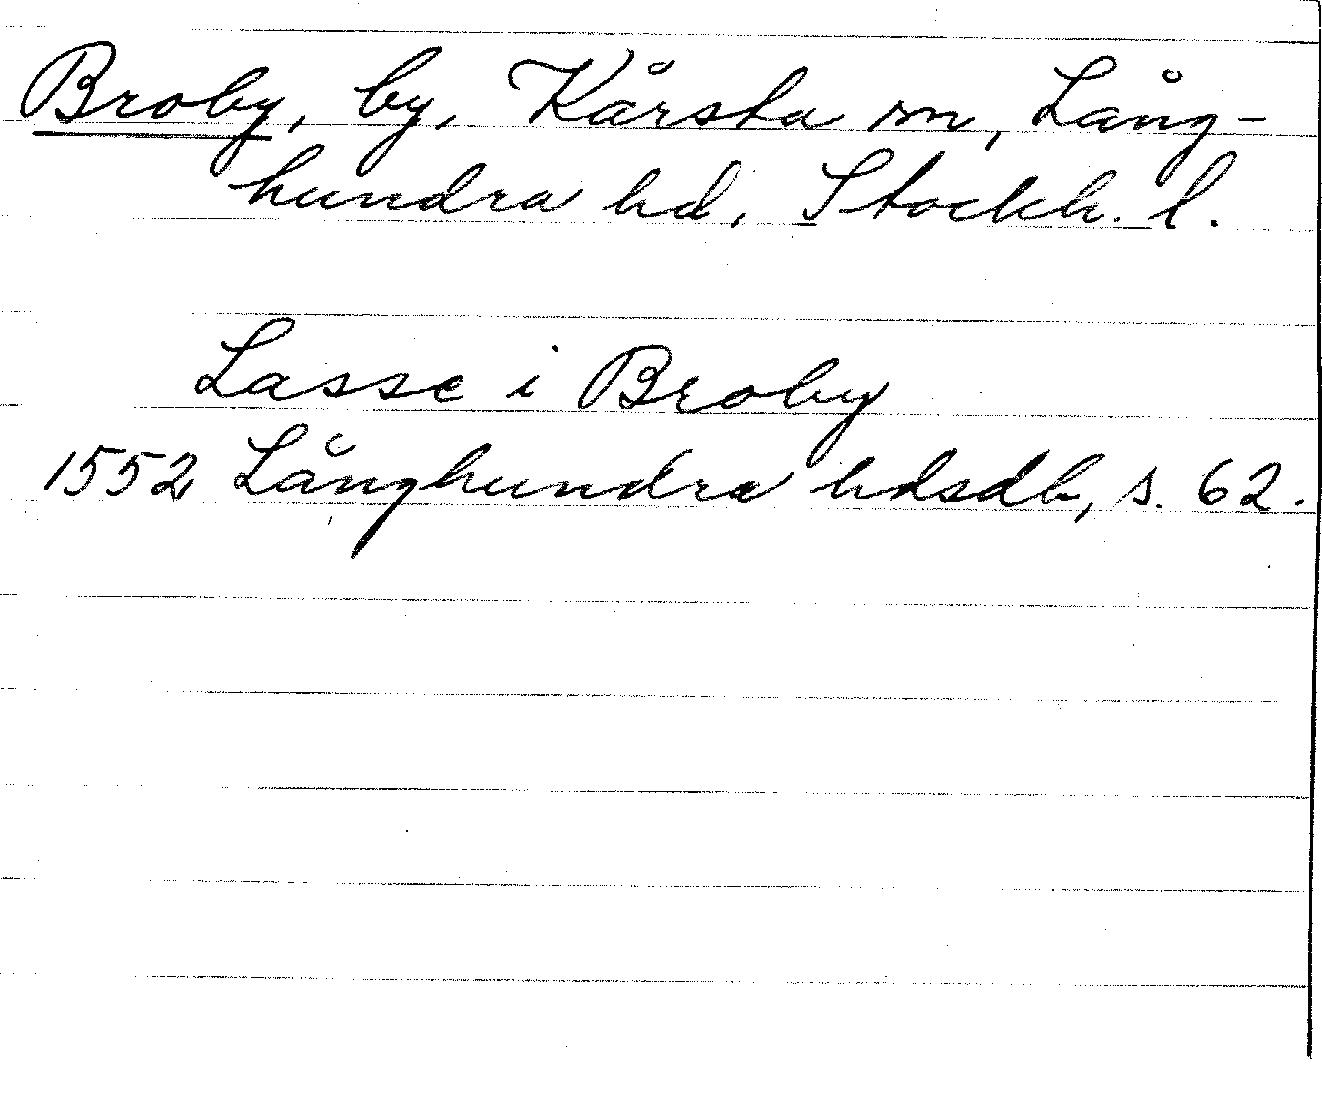 Broby, by, Kårsta sn, Lång-
hundra hd, Stockh. l.
Lasse i Broby
1552 Långhundra hdsdb, s. 62.